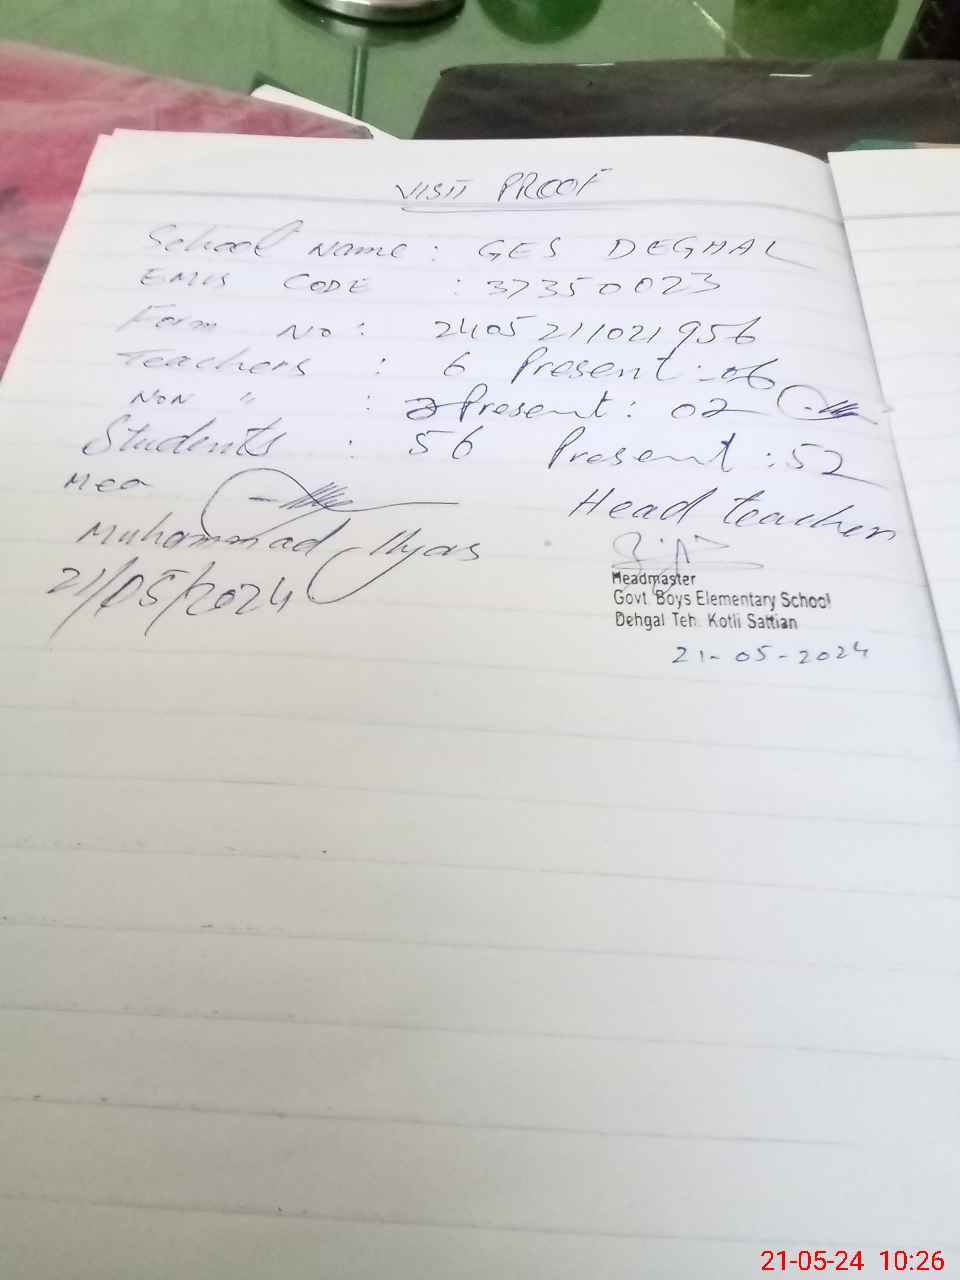 VISIT PROOF
School Name : GES DEGHAL
EMIS CODE : 37350023
Form No : 2405211021956
Teachers : 6 Present : 06
NON " : 2 Present : 02
Students : 56 Present : 52
Mea
Muhammad Ilyas
21/05/2024
Head teacher
Headmaster
Govt. Boys Elementary School
Dehgal Teh. Kotli Sattian
21-05-2024
21-05-24 10:26